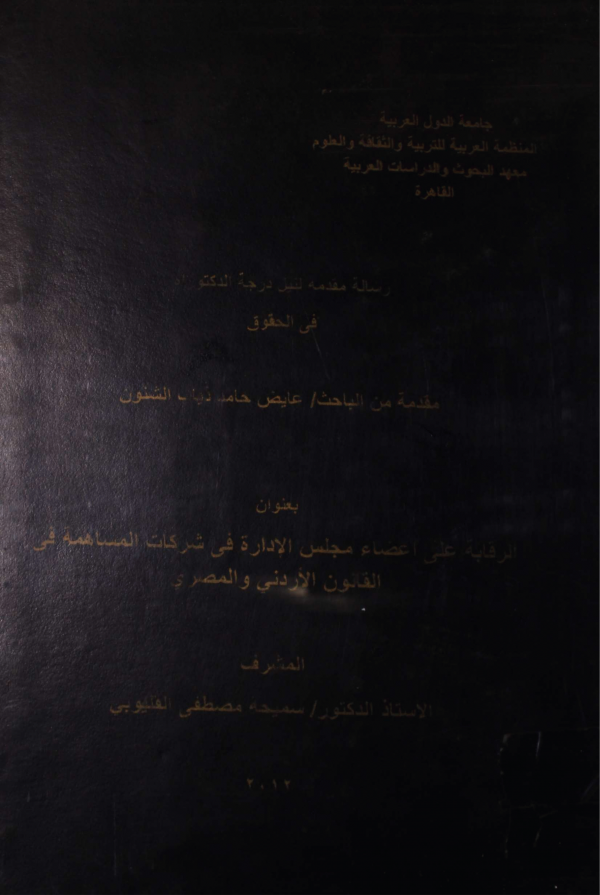 جامعة الدول العربية
المنظمة العربية للتربية والثقافه والعلوم
معهد البحوث والدراسات العربية
القاهرة
رسالة مقدمه لنيل درجة الدكتوراه
في الحقوق
مقدمة من الباحث/ عايض حامد ذياب الشنون
بعنوان
الرقابه على اعضاء مجلس الإدارة في شركات المساهمه في
القانون الأردني والمصري
المشرف
الاستاذ الدكتور/ سميحه مصطفى القليوبي
٢٠١٢